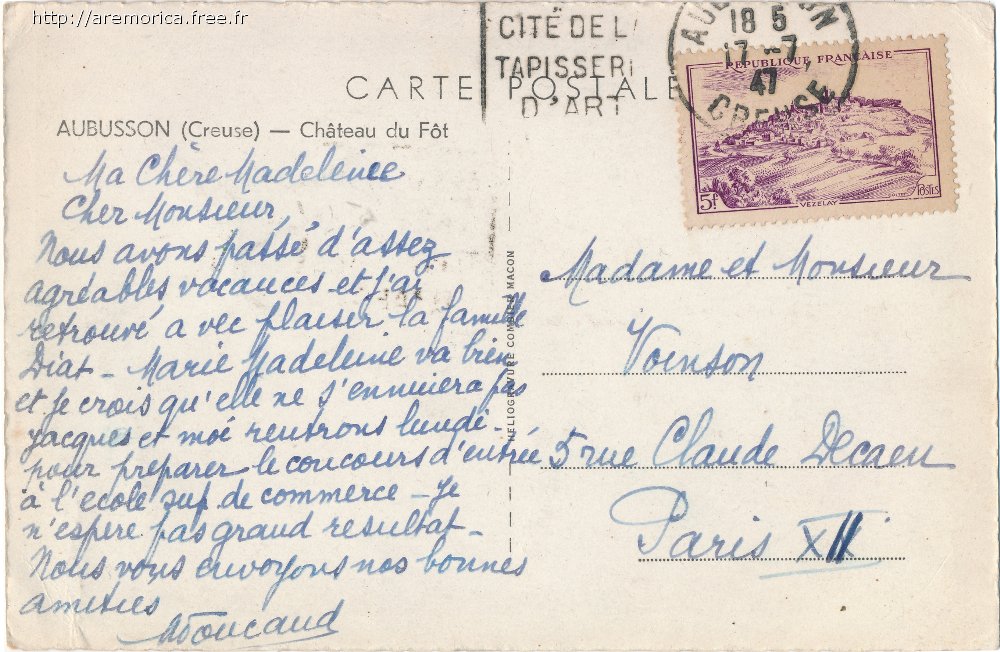 http://aremorica.free.fr
CITÉ DE L
TAPISSER
D'ART
AUB ON
18 5
17-7
47
CREUSE
CARTE POSTALE
RÉPUBLIQUE FRANÇAISE
5f
VEZELAY
POSTES
AUBUSSON (Creuse) — Château du Fôt
Ma Chère Madeleinee
Cher Monsieur,
Nous avons passé d'assez
agréables vacances et j'ai
retrouvé avec plaisir la famille
Diat - Marie Madeleine va bien
et je crois qu'elle ne s'ennuiera pas
Jacques et moi rentrons lundi -
pour préparer le concours d'entrée
à l'école sup de commerce - Je
n'espère pas grand resultat -
Nous vous envoyons nos bonnes
amitiés
HELIOGRAVURE COMBIER MACON
Madame et Monsieur
Voinson
5 rue Claude Decaen
Paris XII